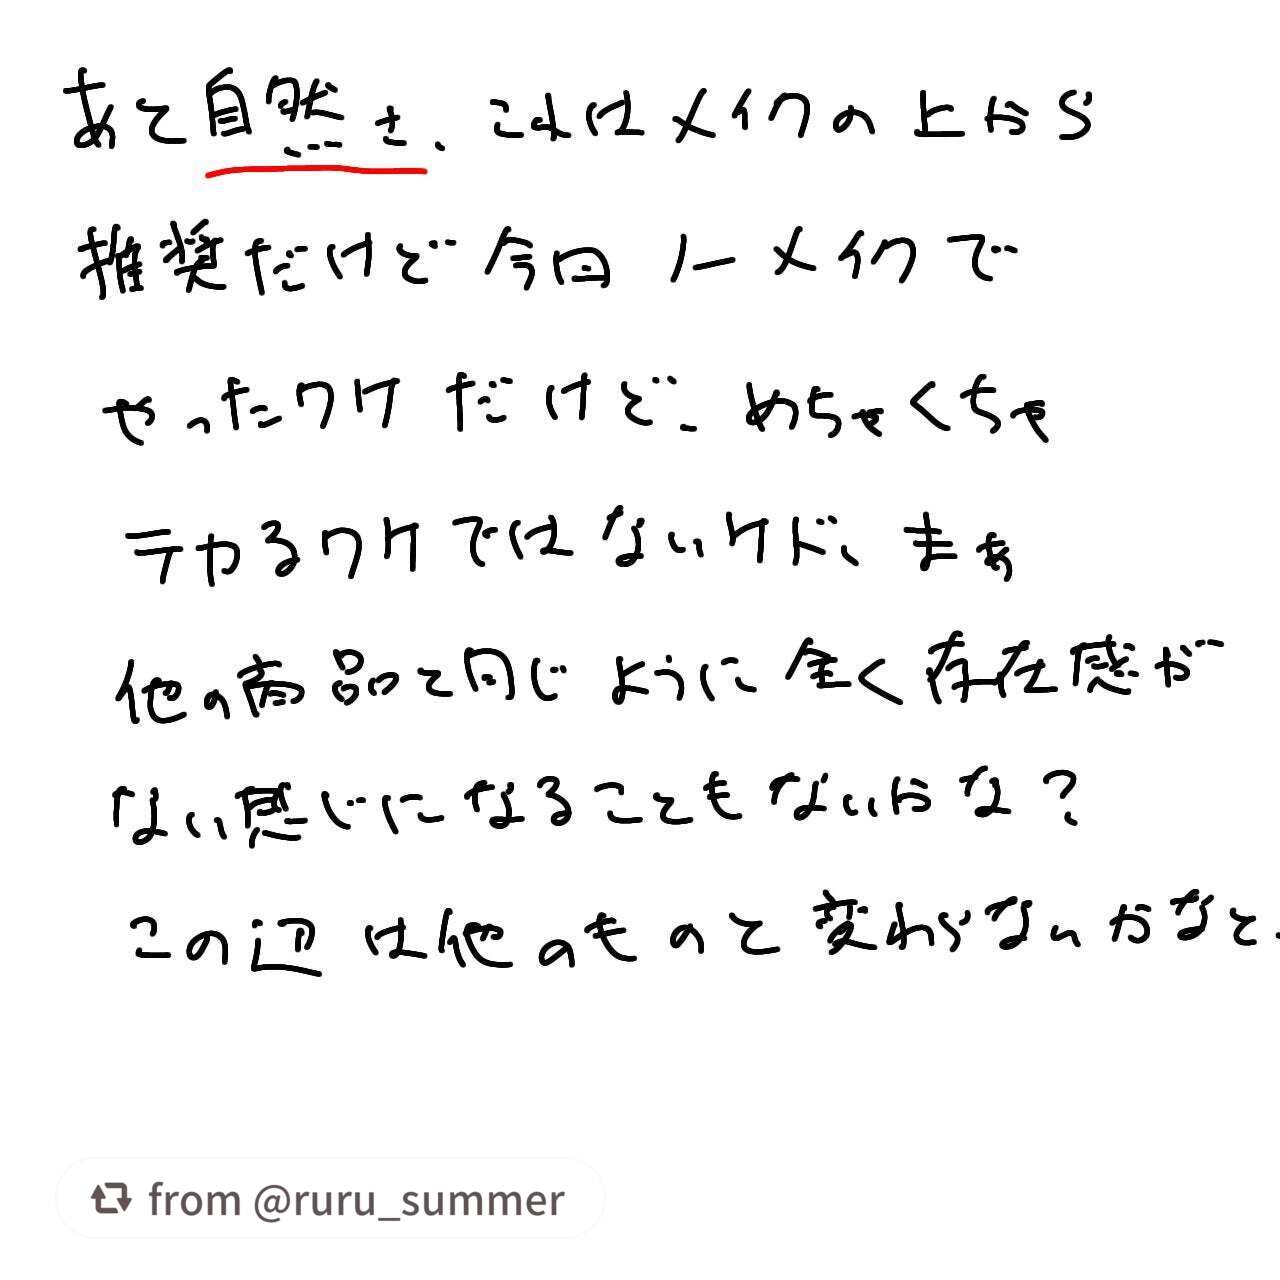 あと自然さ、これはメイクの上から
推奨だけど今回ノーメイクで
やったワケだけど、めちゃくちゃ
テカるワケではないケド、まぁ
他の商品と同じように全く存在感が
ない感じになることもないかな？
この辺は他のものと変わらないかなと、
from @ruru_summer